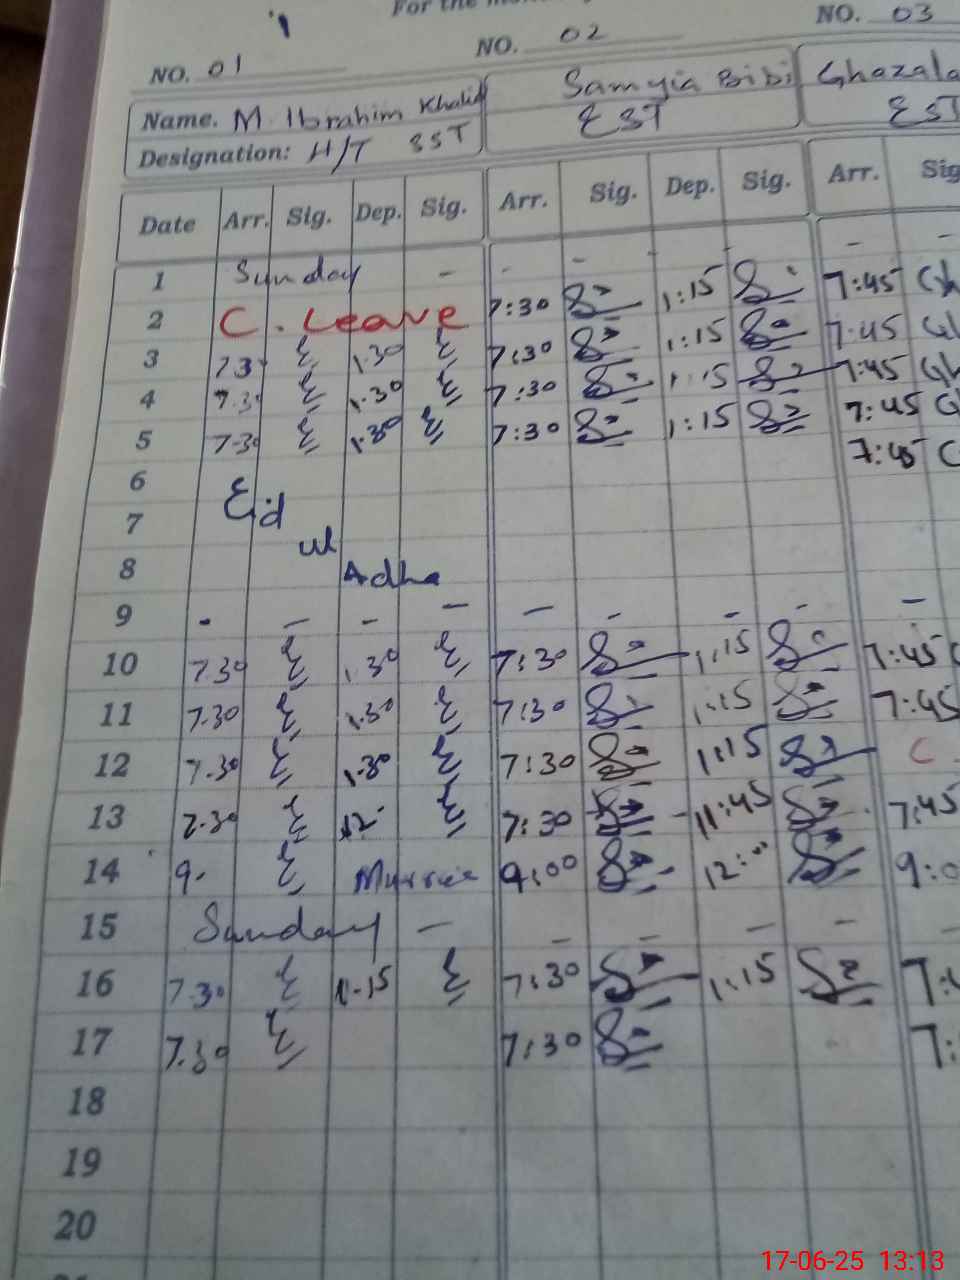 For the
NO. 01 NO. 02 NO. 03
Name. M. Ibrahim Khalid Samyia Bibi Ghazala
Designation: H/T SST EST EST
Date Arr. Sig. Dep. Sig. Arr. Sig. Dep. Sig. Arr. Sig
1 Sunday - - - - - - -
2 C. Leave 7:30 1:15 7:45
3 7.30 1.30 7:30 1:15 7:45
4 7.30 1.30 7:30 1:15 7:45
5 7.30 1.30 7:30 1:15 7:45
7:45
6 Eid
7 ul
8 Adha
9 - - - - - - - - -
10 7.30 1.30 7:30 1:15 7:45
11 7.30 1.30 7:30 1:15 7:45
12 7.30 1.30 7:30 1:15 C.
13 7.30 12. 7:30 11:45 7:45
14 9. 9:00 12:00 9:0
15 Sunday - - - - - -
16 7.30 1.15 7:30 1:15 7:
17 7.30 7:30 7:
18
19
20
17-06-25 13:13